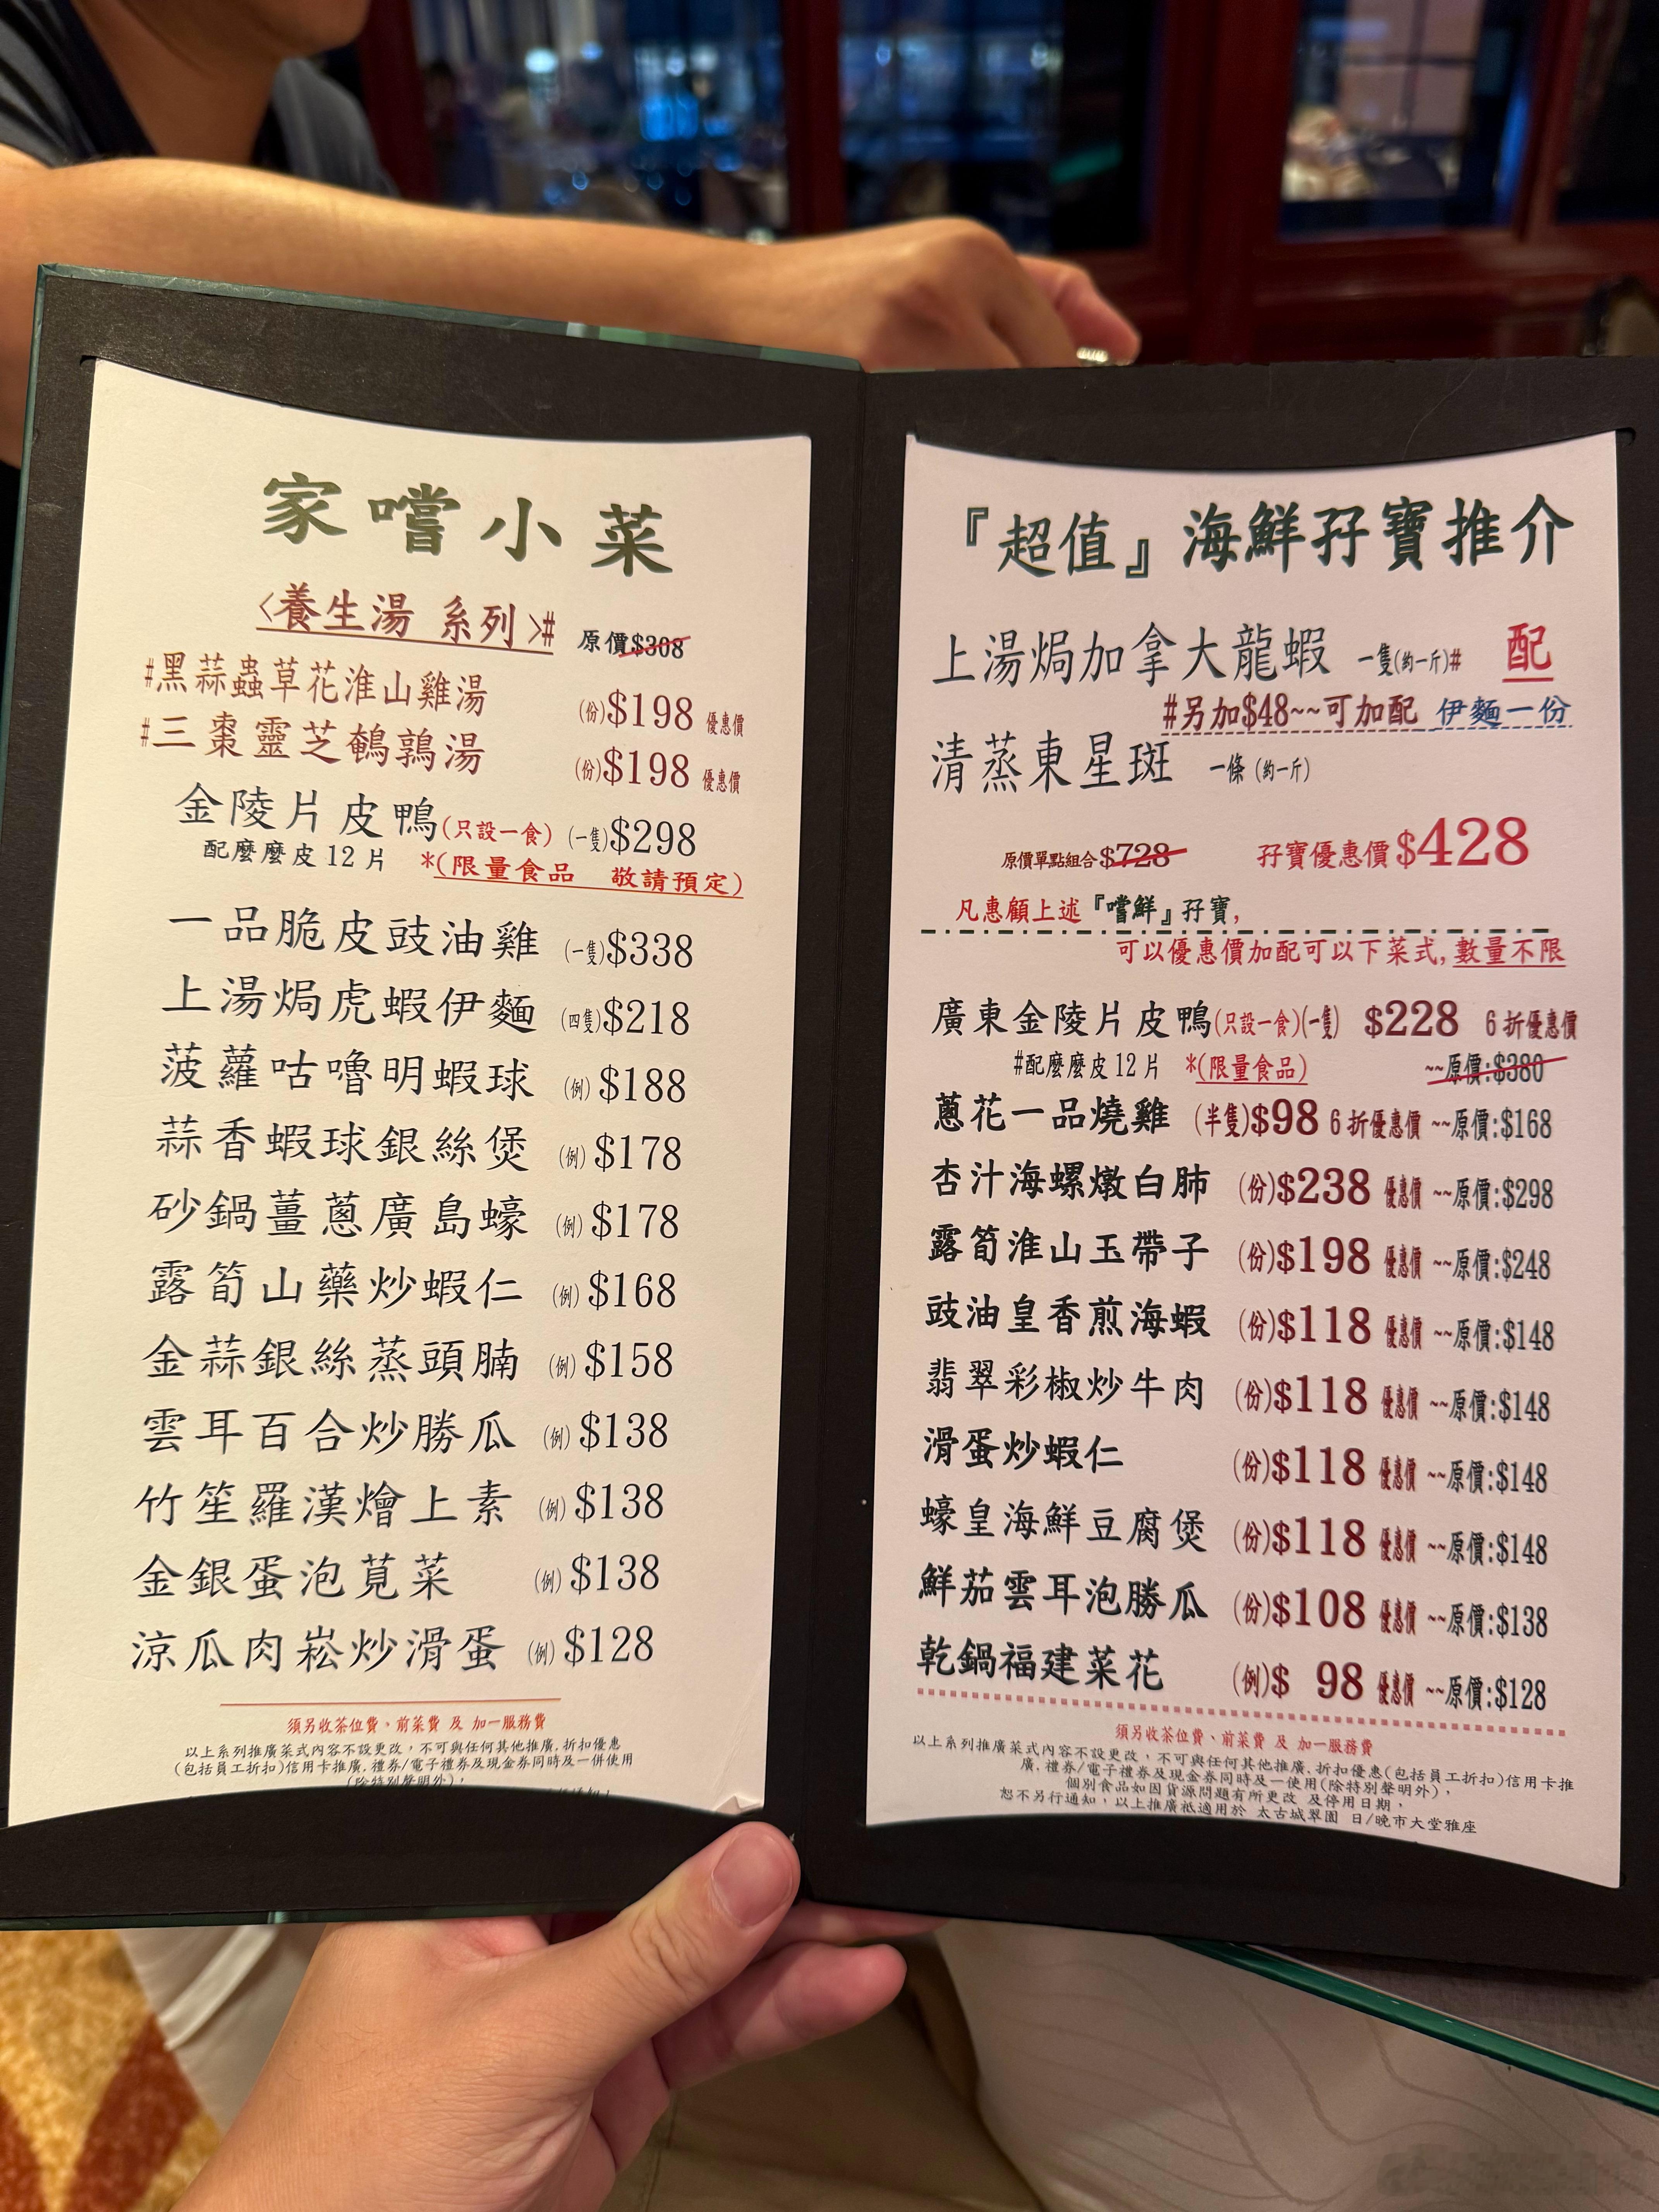 家嚐小菜
<養生湯 系列># 原價$308
#黑蒜蟲草花淮山雞湯 (份)$198 優惠價
#三棗靈芝鵪鶉湯 (份)$198 優惠價
金陵片皮鴨(只設一食) (一隻)$298
配麼麼皮12片 *(限量食品 敬請預定)
一品脆皮豉油雞 (一隻)$338
上湯焗虎蝦伊麵 (四隻)$218
菠蘿咕嚕明蝦球 (例) $188
蒜香蝦球銀絲煲 (例) $178
砂鍋薑蔥廣島蠔 (例) $178
露筍山藥炒蝦仁 (例) $168
金蒜銀絲蒸頭腩 (例) $158
雲耳百合炒勝瓜 (例) $138
竹笙羅漢燴上素 (例) $138
金銀蛋泡莧菜 (例) $138
涼瓜肉崧炒滑蛋 (例) $128
須另收茶位費、前菜費 及 加一服務費
以上系列推廣菜式內容不設更改，不可與任何其他推廣.折扣優惠
(包括員工折扣)信用卡推廣.禮券/電子禮券及現金券同時及一併使用
(除特別聲明外)，
『超值』海鮮孖寶推介
上湯焗加拿大龍蝦 一隻(約一斤)# 配
#另加$48~~可加配 伊麵一份
清蒸東星斑 一條 (約一斤)
原價單點組合$728 孖寶優惠價$428
凡惠顧上述『嚐鮮』孖寶,
可以優惠價加配可以下菜式,數量不限
廣東金陵片皮鴨(只設一食)(一隻) $228 6折優惠價
#配麼麼皮12片 *(限量食品) ~~原價:$380
蔥花一品燒雞 (半隻)$98 6折優惠價 ~~原價:$168
杏汁海螺燉白肺 (份)$238 優惠價 ~~原價:$298
露筍淮山玉帶子 (份)$198 優惠價 ~~原價:$248
豉油皇香煎海蝦 (份)$118 優惠價 ~~原價:$148
翡翠彩椒炒牛肉 (份)$118 優惠價 ~~原價:$148
滑蛋炒蝦仁 (份)$118 優惠價 ~~原價:$148
蠔皇海鮮豆腐煲 (份)$118 優惠價 ~~原價:$148
鮮茄雲耳泡勝瓜 (份)$108 優惠價 ~~原價:$138
乾鍋福建菜花 (例)$ 98 優惠價 ~~原價:$128
須另收茶位費、前菜費 及 加一服務費
以上系列推廣菜式內容不設更改，不可與任何其他推廣.折扣優惠(包括員工折扣)信用卡推
廣.禮券/電子禮券及現金券同時及一使用(除特別聲明外)，
個別食品如因貨源問題有所更改 及停用日期，
恕不另行通知，以上推廣衹適用於 太古城翠園 日/晚市大堂雅座